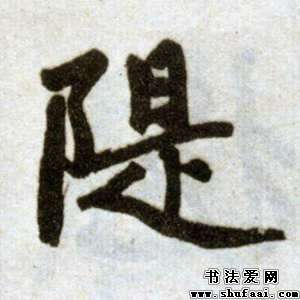 隄
书法爱网
www.shufaai.com